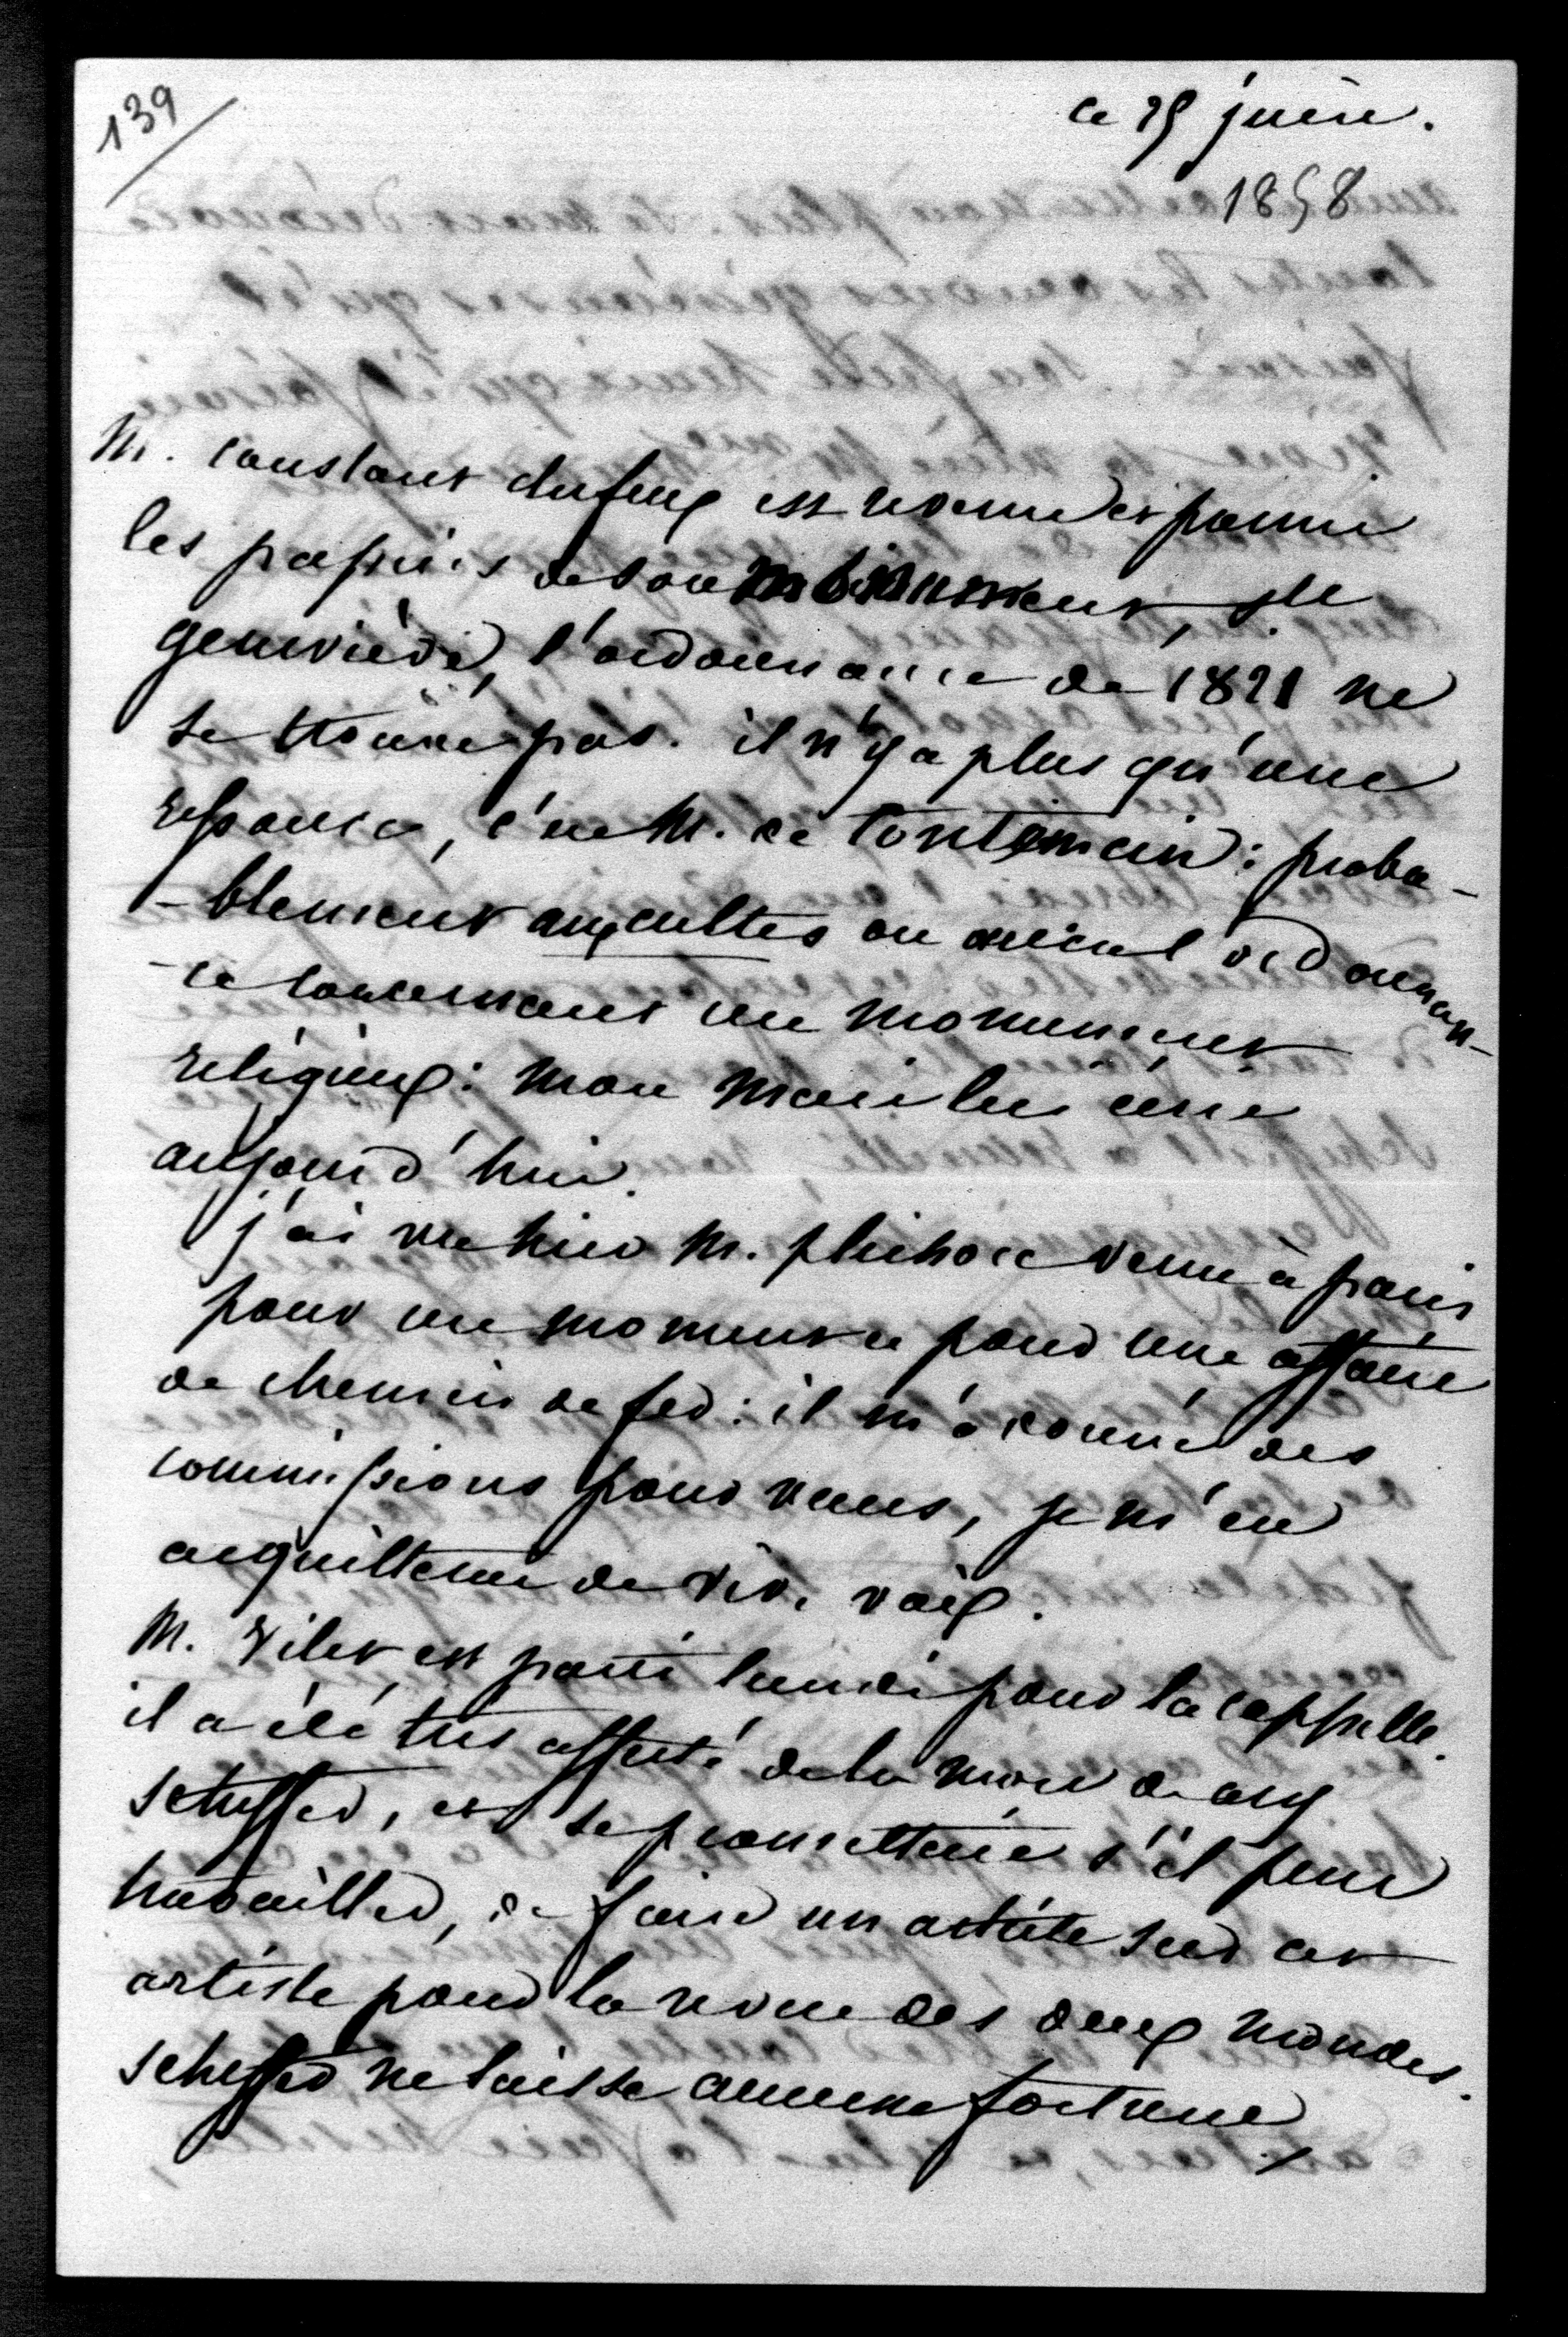 139
ce 25 juin.
1858
M. constant dufeux est revenu et parmi
les papiers de son monument, Ste
geneviève, l'ordonnance de 1821 ne
se trouve pas. il n'y a plus qu'une
ressource, c'est M. de : proba-
-blement aux cultes on aura l'ordonnan-
-ce concernant un monument
religieux : mon mari lui écrit
aujourd'hui.
j'ai vu hier M. venu à paris
pour un moment et pour une affaire
de chemin de fer : il m'a donné des
commissions pour vous, je m'en
acquitterai de vive voix.
M. Vitet est parti lundi pour la cappelle.
il a été très affecté de la mort de ary
scheffer, et se promettait s'il peut
travailler, de faire un article sur cet
artiste pour la revue des deux mondes.
scheffer ne laisse aucune fortune,